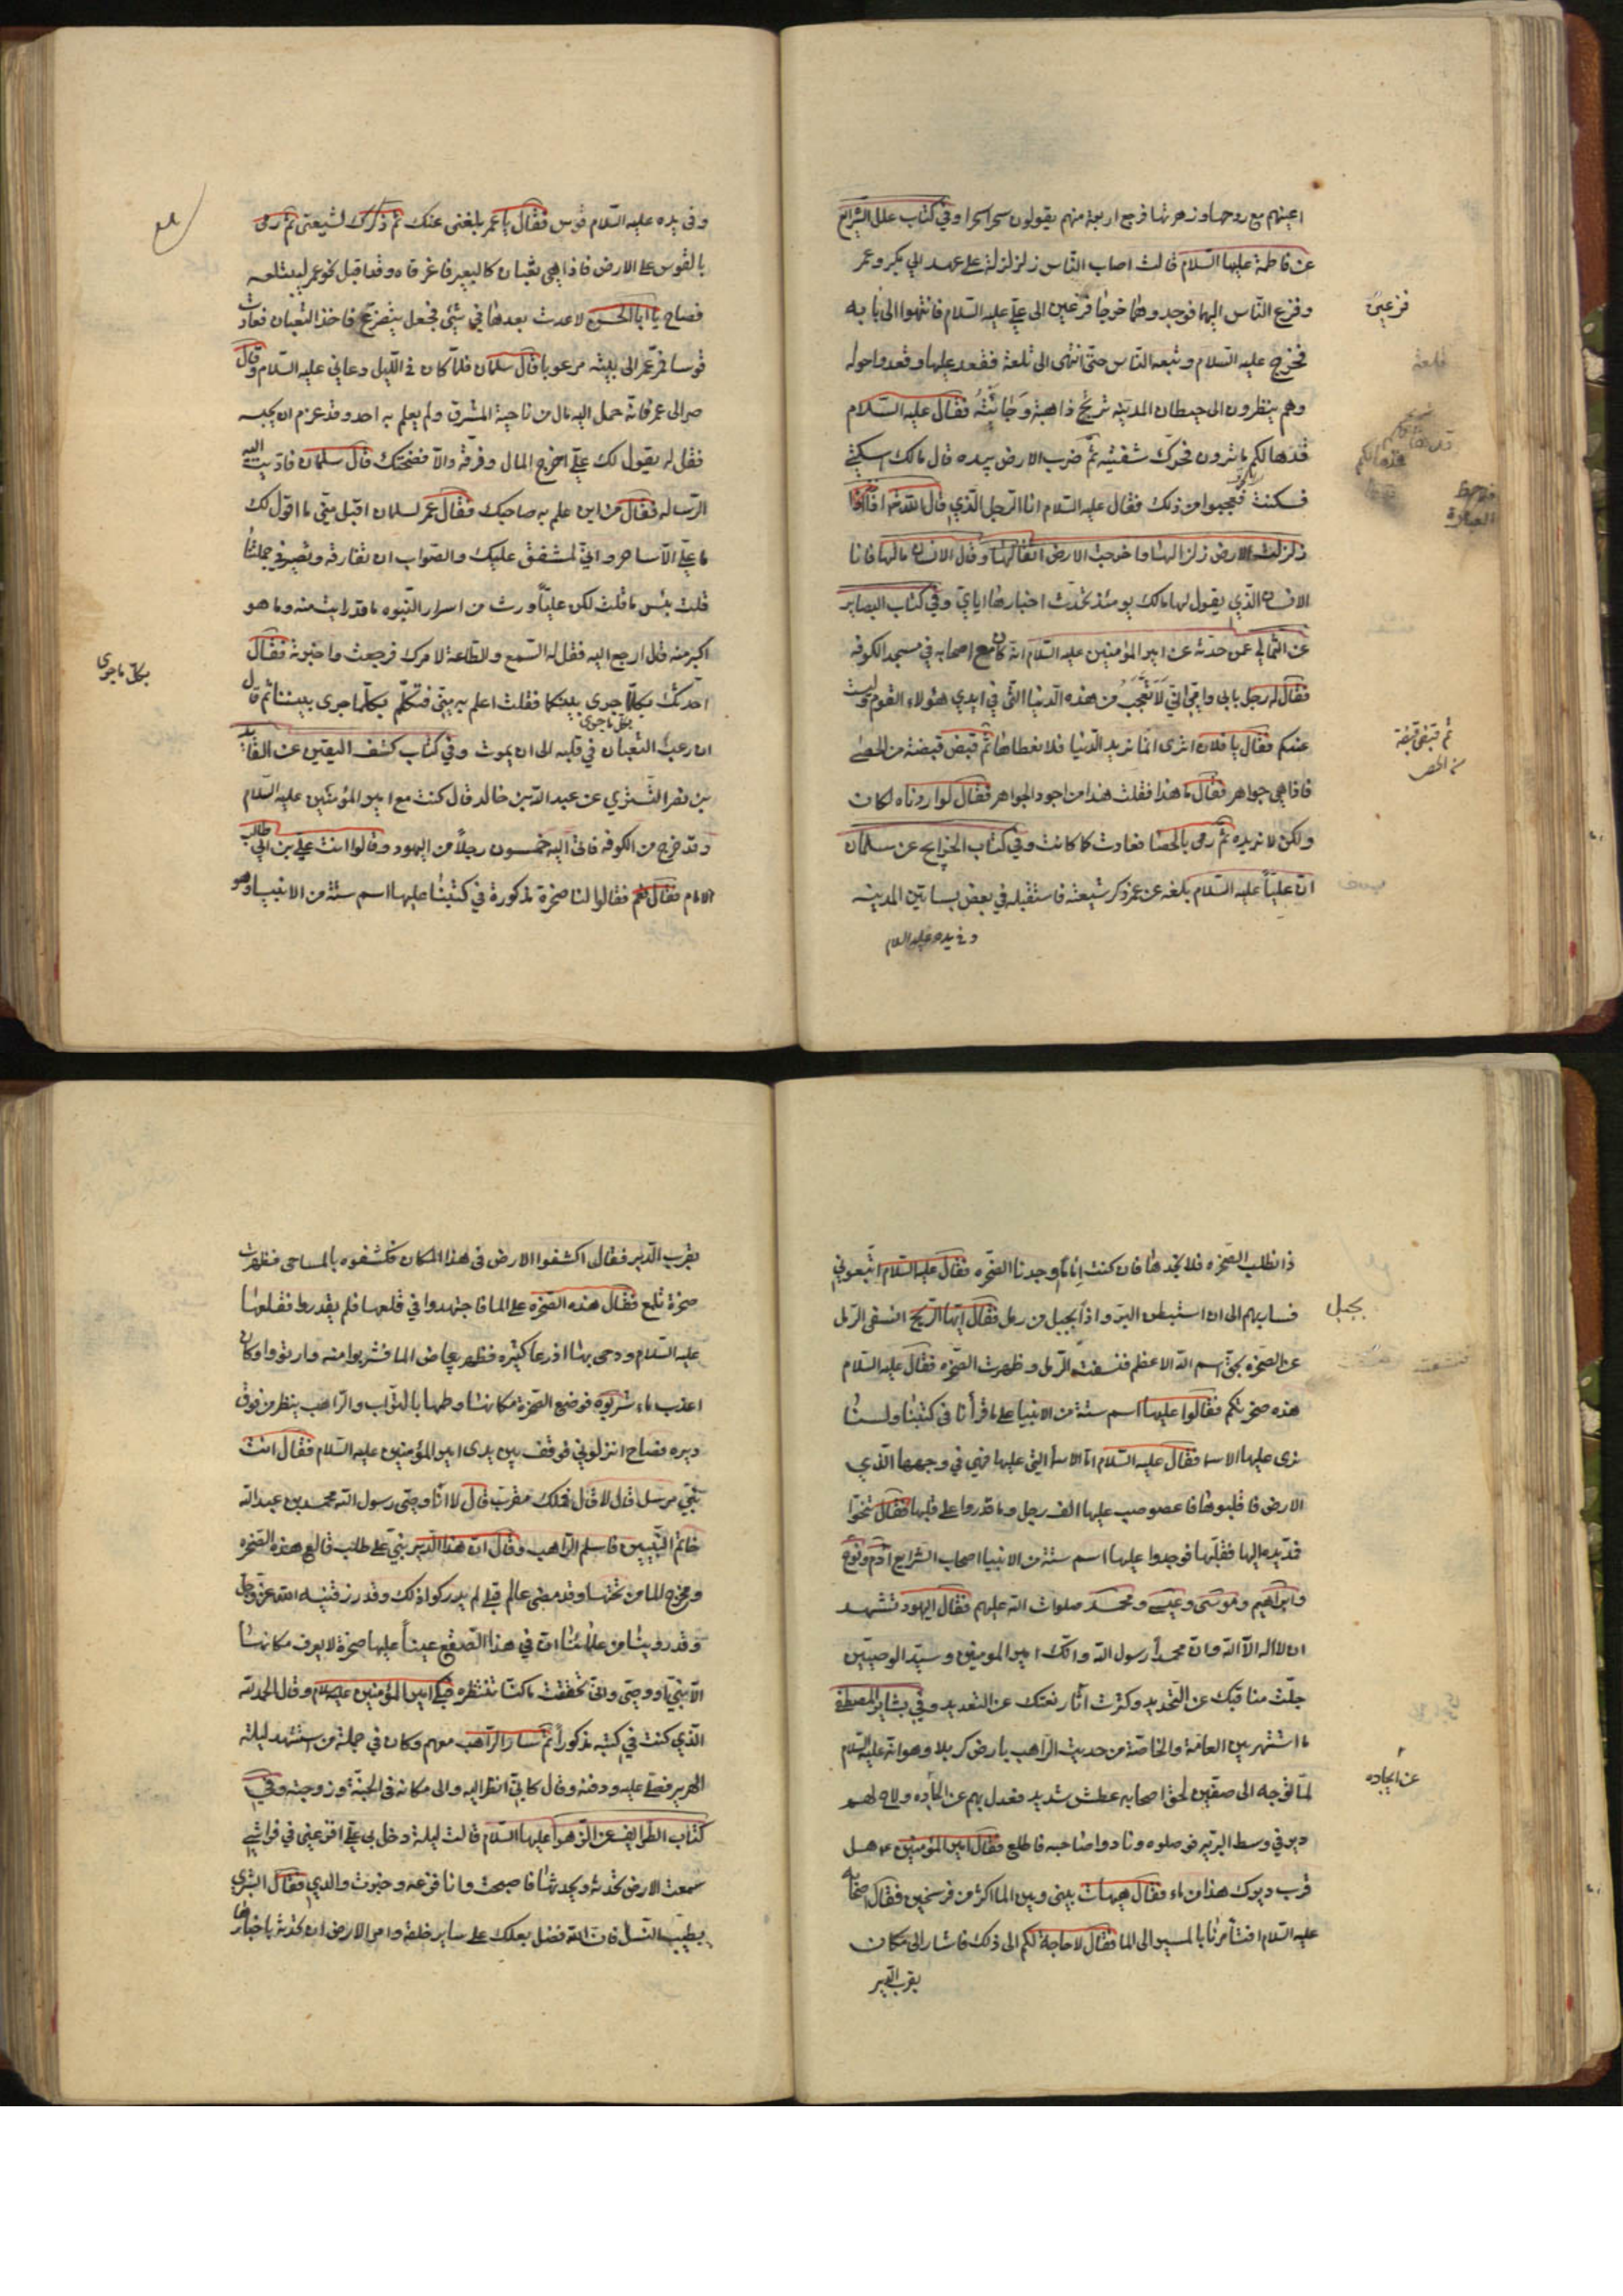 اعينهم مع روحها وزهرتها فرجع اربعة منهم يقولون سحرا سحرا وفي كتاب علل الشرايع
عن فاطمة عليها السلام قالت اصاب الناس زلزلة على عهد ابي بكر وعمر
وفزع الناس اليهما فوجدوهما خرجا فزعين الى علي عليه السلام فانتهوا الى بابه
فزعين
فخرج عليه السلام وتبعه الناس حتى انتهى الى تلعة فقعد عليها وقعدوا حوله
وهم ينظرون الى حيطان المدينة ترتج ذاهبة وجائية فقال عليه السلام
قد هالكم ما ترون فحرك شفتيه ثم ضرب الارض بيده قال مالك اسكني
فسكنت فعجبوا من ذلك فقال عليه السلام انا الرجل الذي قال الله تعالى اذا
زلزلت الارض زلزالها واخرجت الارض اثقالها وقال الانسان مالها فانا
الانسان الذي يقول لها مالك يومئذ تحدث اخبارها اياي وفي كتاب البصاير
عن الثمالي عمن حدثه عن امير المؤمنين عليه السلام انه كان مع اصحابه في مسجد الكوفه
فقال له رجل بابي وامي اني لاتعجب من هذه الدنيا التي في ايدي هؤلاء القوم وليست
عندكم فقال يا فلان اترى انما نريد الدنيا فلا نعطاها ثم قبض قبضة من الحصى
ثم قبض قبضة من الحصى
فاذا هي جواهر فقال ما هذا فقلت هذا من اجود الجواهر فقال لو اردناه لكان
ولكن لا نريده ثم رمى بالحصا فعادت كما كانت وفي كتاب الخرايج عن سلمان
ان عليا عليه السلام بلغه عن عمر ذكر شيعته فاستقبله في بعض بساتين المدينه
وفي يده عليه السلام
وفى يده عليه السلام قوس فقال يا عمر بلغنى عنك ثم ذكرك لشيعتى ثم رمى
بالقوس على الارض فاذا هي ثعبان كالبعير فاغرفاه وقد اقبل نحو عمر ليبتلعه
فصاح يا ابا الحسن لا عدت بعدها في شئ فجعل يتضرع فاخذ الثعبان فعادت
قوسا فمر عمر الى بيته مرعوبا قال سلمان فلما كان في الليل دعاني عليه السلام وقال
صر الى عمر فانه حمل اليه مال من ناحية المشرق ولم يعلم به احد وقد عزم ان يحبسه
فقل له يقول لك علي اخرج المال وفرقه والا فضحتك قال سلمان فاديت اليه
الرساله فقال من اين علم به صاحبك فقال عمر لسلمان اقبل مني ما اقول لك
ما علي الا ساحر واني لمشفق عليك والصواب ان تفارقه وتصير في جملتنا
قلت بئس ما قلت لكن عليا ورث من اسرار النبوه ما قد رايت منه وما هو
اكبر منه قال ارجع اليه فقل له السمع والطاعة لامرك فرجعت واخبرته فقال
احدثك بكلما جرى بينكما فقلت اعلم به مني فتكلم بكلما جرى بيننا ثم قال
بكل ما جرى
بكل ما جرى
ان رعب الثعبان في قلبه الى ان يموت وفي كتاب كشف اليقين عن القايد
بن نصر التستري عن عبد الله بن خالد قال كنت مع امير المؤمنين عليه السلام
وقد خرج من الكوفه فاتى اليه خمسون رجلا من اليهود وقالوا انت علي بن ابي طالب
الامام فقال نعم فقالوا لنا صخرة مذكورة في كتبنا عليها اسم ستة من الانبيا وهو
ذا نطلب الصخره فلا نجدها فان كنت اماما وجدنا الصخره فقال عليه السلام اتبعوني
فسار بهم الى ان استبطن البر واذا بجبل من رمل فقال ايتها الريح انسفي الرمل
بجبل
عن الصخره بحق اسم الله الاعظم فنسفت الرمل وظهرت الصخره فقال عليه السلام
هذه صخرتكم فقالوا عليها اسم ستة من الانبيا على ما قرأنا في كتبنا ولسنا
نرى عليها الاسما فقال عليه السلام اما الاسما التي عليها فهي في وجهها الذي
الارض فاقلبوها فاعصوصب عليها الف رجل وما قدروا على قلبها فقال تنحوا
فمد يده اليها فقلبها فوجدوا عليها اسم ستة من الانبيا اصحاب الشرايع ادم ونوح
وابراهيم وموسى وعيسى ومحمد صلوات الله عليهم فقال اليهود نشهد
ان لا اله الا الله وان محمدا رسول الله وانك امير المومنين وسيد الوصيين
جلت مناقبك عن التحديد وكثرت آثار نعتك عن التعديد وفي بشاير المصطفى
ما اشتهر بين العامة والخاصة من حديث الراهب بارض كربلا وهو انه عليه السلام
لما توجه الى صفين لحق اصحابه عطش شديد فعدل بهم عن الجاده ولاح لهم
عن الجاده
دير في وسط البريه فوصلوه ونادوا صاحبه فاطلع فقال امير المؤمنين ع هل
قرب ديرك هذا من ماء فقال هيهات بيني وبين الما اكثر من فرسخين فقال اصحابه
عليه السلام افتأمرنا بالمسير الى الما فقال لا حاجة لكم الى ذلك فاشار الى مكان
بقرب الدير
بقرب الدير فقال اكشفوا الارض فى هذا المكان فكشفوه بالمساحى فظهرت
صخرة تلمع فقال هذه الصخره على الما فاجتهدوا في قلعها فلم يقدروا فقلعها
عليه السلام ودحى بها اذرعا كثيره فظهر بياض الما فشربوا منه وارتووا وكان
اعذب ماء شربوه فوضع الصخرة مكانها وطمها بالتراب والراهب ينظر من فوق
ديره فصاح انزلوني فوقف بين يدى امير المؤمنين عليه السلام فقال انت
نبي مرسل قال لا قال فملك مقرب قال لا انا وصى رسول الله محمد بن عبد الله
خاتم النبيين فاسلم الراهب وقال ان هذا الدير بني على طلب قالع هذه الصخره
ومخرج الما من تحتها وقد مضى عالم قبلي لم يدركوا ذلك وقد رزقنيه الله عز وجل
وقد روينا من علمائنا ان في هذا الصقع عينا عليها صخرة لا يعرف مكانها
الا نبي او وصى وانى تحققت ما كنا ننتظره فبكى امير المؤمنين عليه السلام وقال الحمد لله
الذي كنت في كتبه مذكورا ثم سار الراهب معهم وكان في جملة من استشهد ليلة
الهرير فصلى عليه ودفنه وقال كاني انظر اليه والى مكانه في الجنة وزوجته وفي
كتاب الطرايف عن الزهرا عليها السلام قالت ليلة دخل بي علي افزعني في فراشي
سمعت الارض تحدثه ويحدثها فاصبحت وانا فزعه وخبرت والدي فقال ابشرى
بطيب النسل فان الله فضل بعلك على ساير خلقه وامر الارض ان تحدثه باخبارها